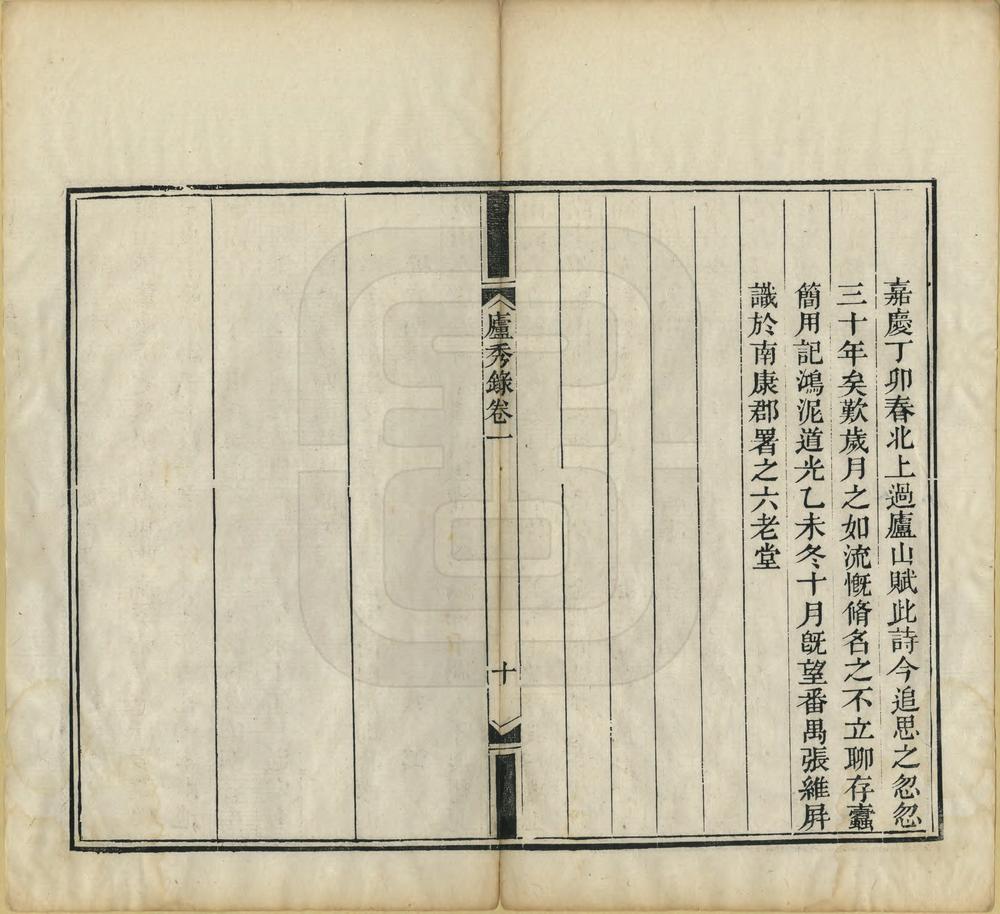 嘉慶丁卯春北上過廬山賦此詩今追思之忽忽
三十年矣歎歲月之如流慨脩名之不立聊存蠧
簡用記鴻泥道光乙未冬十月既望番禺張維屏
識於南康郡署之六老堂
廬秀錄卷一
十